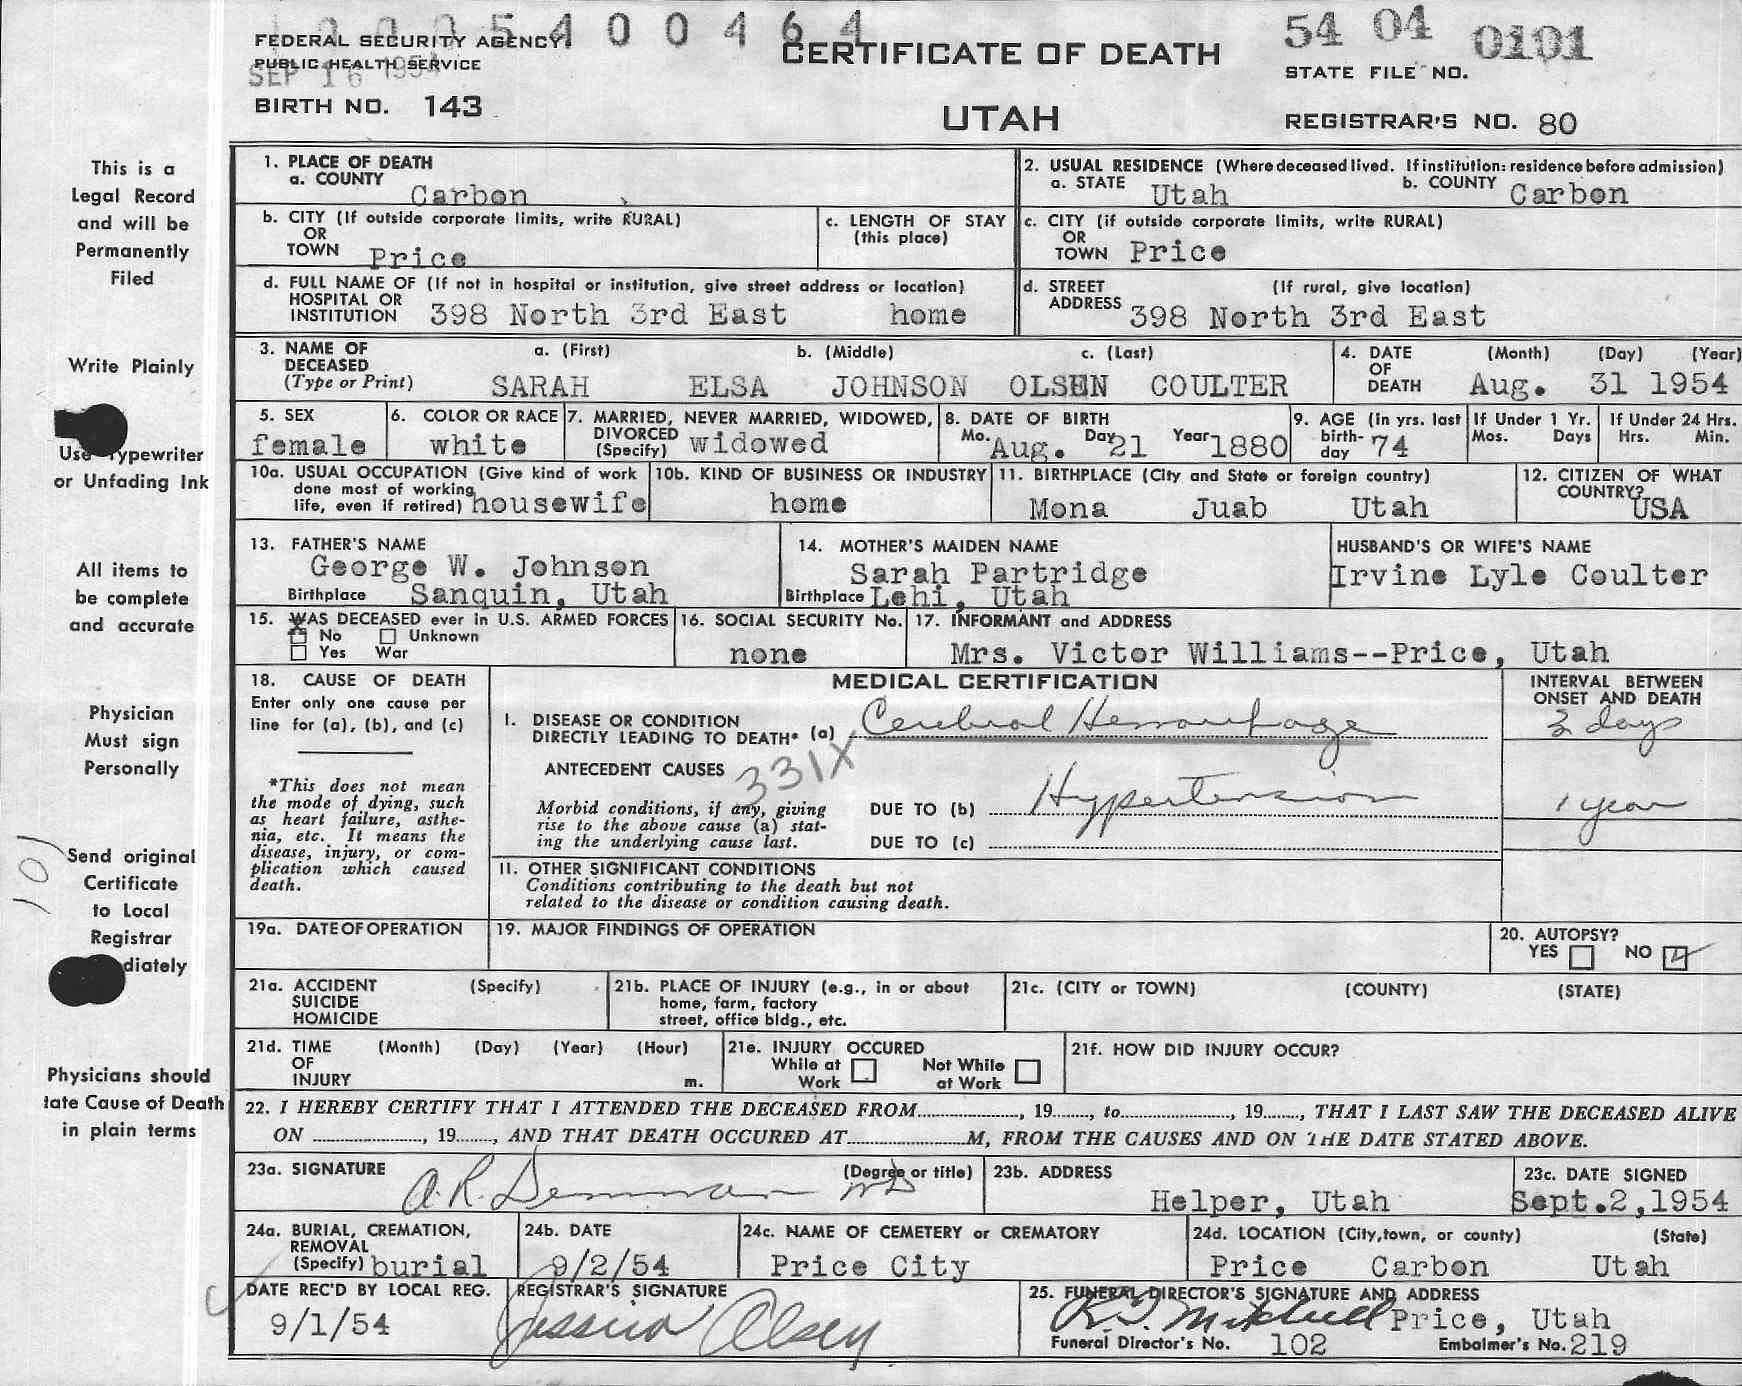 1005400464
FEDERAL SECURITY AGENCY
PUBLIC HEALTH SERVICE
SEP 16 1954
BIRTH NO. 143
CERTIFICATE OF DEATH
UTAH
54 04 0101
STATE FILE NO.
REGISTRAR'S NO. 80
This is a
Legal Record
and will be
Permanently
Filed
Write Plainly
Use Typewriter
or Unfading Ink
All items to
be complete
and accurate
Physician
Must sign
Personally
101
Send original
Certificate
to Local
Registrar
diately
Physicians should
tate Cause of Death
in plain terms
1. PLACE OF DEATH
a. COUNTY Carbon
2. USUAL RESIDENCE (Where deceased lived. If institution: residence before admission)
a. STATE Utah b. COUNTY Carbon
b. CITY (If outside corporate limits, write RURAL)
OR
TOWN Price
c. LENGTH OF STAY
(this place)
c. CITY (if outside corporate limits, write RURAL)
OR
TOWN Price
d. FULL NAME OF (If not in hospital or institution, give street address or location)
HOSPITAL OR
INSTITUTION 398 North 3rd East home
d. STREET (If rural, give location)
ADDRESS 398 North 3rd East
3. NAME OF a. (First) b. (Middle) c. (Last)
DECEASED
(Type or Print) SARAH ELSA JOHNSON OLSEN COULTER
4. DATE (Month) (Day) (Year)
OF
DEATH Aug. 31 1954
5. SEX
female
6. COLOR OR RACE
white
7. MARRIED, NEVER MARRIED, WIDOWED,
DIVORCED
(Specify) widowed
8. DATE OF BIRTH
Mo. Aug. Day 21 Year 1880
9. AGE (in yrs. last
birth-
day 74
If Under 1 Yr.
Mos. Days
If Under 24 Hrs.
Hrs. Min.
10a. USUAL OCCUPATION (Give kind of work
done most of working
life, even if retired) housewife
10b. KIND OF BUSINESS OR INDUSTRY
home
11. BIRTHPLACE (City and State or foreign country)
Mona Juab Utah
12. CITIZEN OF WHAT
COUNTRY?
USA
13. FATHER'S NAME
George W. Johnson
Birthplace Sanquin, Utah
14. MOTHER'S MAIDEN NAME
Sarah Partridge
Birthplace Lehi, Utah
HUSBAND'S OR WIFE'S NAME
Irvine Lyle Coulter
15. WAS DECEASED ever in U.S. ARMED FORCES
X No Unknown
Yes War
16. SOCIAL SECURITY No.
none
17. INFORMANT and ADDRESS
Mrs. Victor Williams--Price, Utah
18. CAUSE OF DEATH
Enter only one cause per
line for (a), (b), and (c)
*This does not mean
the mode of dying, such
as heart failure, asthe-
nia, etc. It means the
disease, injury, or com-
plication which caused
death.
MEDICAL CERTIFICATION
INTERVAL BETWEEN
ONSET AND DEATH
I. DISEASE OR CONDITION
DIRECTLY LEADING TO DEATH* (a) Cerebral Hemorrhage
days
ANTECEDENT CAUSES 331X
Morbid conditions, if any, giving
rise to the above cause (a) stat-
ing the underlying cause last.
DUE TO (b) Hypertension
1 year
DUE TO (c)
II. OTHER SIGNIFICANT CONDITIONS
Conditions contributing to the death but not
related to the disease or condition causing death.
19a. DATE OF OPERATION
19. MAJOR FINDINGS OF OPERATION
20. AUTOPSY?
YES NO
21a. ACCIDENT (Specify)
SUICIDE
HOMICIDE
21b. PLACE OF INJURY (e.g., in or about
home, farm, factory
street, office bldg., etc.
21c. (CITY or TOWN) (COUNTY) (STATE)
21d. TIME (Month) (Day) (Year) (Hour)
OF
INJURY m.
21e. INJURY OCCURED
While at Not While
Work at Work
21f. HOW DID INJURY OCCUR?
22. I HEREBY CERTIFY THAT I ATTENDED THE DECEASED FROM..., 19..., to..., 19..., THAT I LAST SAW THE DECEASED ALIVE
ON ..., 19..., AND THAT DEATH OCCURED AT...M, FROM THE CAUSES AND ON THE DATE STATED ABOVE.
23a. SIGNATURE (Degree or title)
A. R. Demman MD
23b. ADDRESS
Helper, Utah
23c. DATE SIGNED
Sept.2,1954
24a. BURIAL, CREMATION,
REMOVAL
(Specify) burial
24b. DATE
9/2/54
24c. NAME OF CEMETERY or CREMATORY
Price City
24d. LOCATION (City, town, or county) (State)
Price Carbon Utah
DATE REC'D BY LOCAL REG.
9/1/54
REGISTRAR'S SIGNATURE
Jessica Olsen
25. FUNERAL DIRECTOR'S SIGNATURE AND ADDRESS
R. D. Mitchell Price, Utah
Funeral Director's No. 102 Embalmer's No. 219